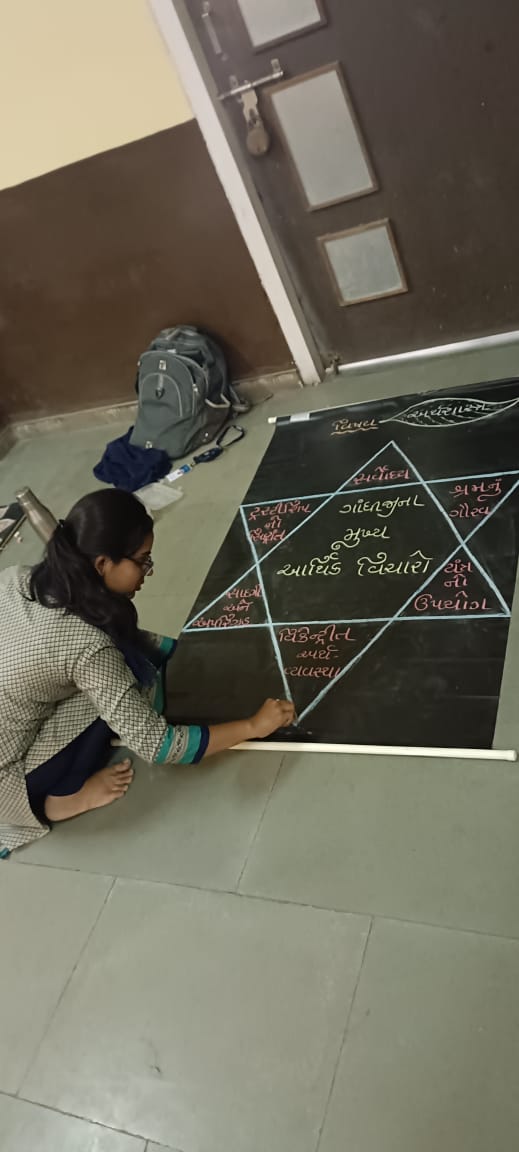 વિષય અર્થશાસ્ત્ર
સર્વોદય
ટ્રસ્ટીશિપ
નો
સિદ્ધાંત
શ્રમનું
ગૌરવ
ગાંધીજીના
મુખ્ય
આર્થિક વિચારો
સાદગી
અને
અપરિગ્રહ
યંત્ર
નો
ઉપયોગ
વિકેન્દ્રીત
અર્થ-
વ્યવસ્થા